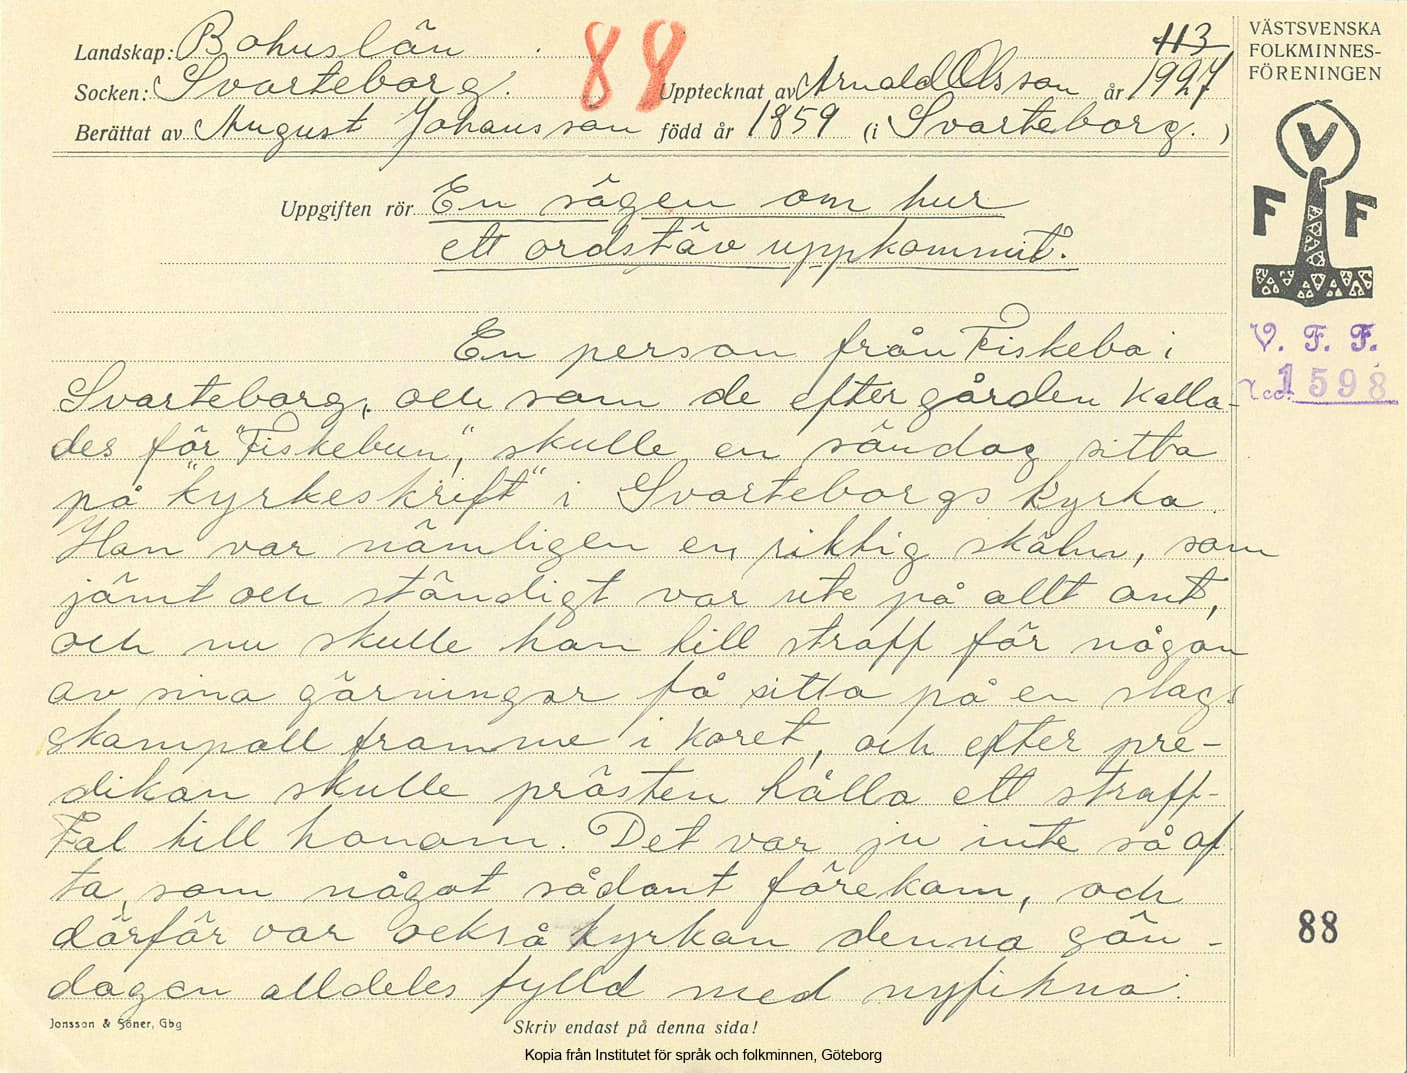 Landskap: Bohuslän
88
113
Socken: Svarteborg. Upptecknat av Arnold Olsson år 1927
Berättat av August Johansson född år 1859 (i Svarteborg. )
VÄSTSVENSKA
FOLKMINNES-
FÖRENINGEN
V
F F
Uppgiften rör En sägen om hur
ett ordstäv uppkommit.
V. F. F.
acc. 1598
En person från Fiskebo i
Svarteborg, och som de efter gården kalla-
des för "Fiskebun", skulle en söndag sitta
på "kyrkeskrift" i Svarteborgs kyrka.
Han var nämligen en riktig skälm, som
jämt och ständigt var ute på allt ont,
och nu skulle han till straff för någon
av sina gärningar få sitta på en slags
skampall framme i koret, och efter pre-
dikan skulle prästen hålla ett straff-
tal till honom. Det var ju inte så of
ta, som något sådant förekom, och
därför var också kyrkan denna sön-
dagen alldeles fylld med nyfikna.
88
Jonsson & Söner, Gbg
Skriv endast på denna sida!
Kopia från Institutet för språk och folkminnen, Göteborg